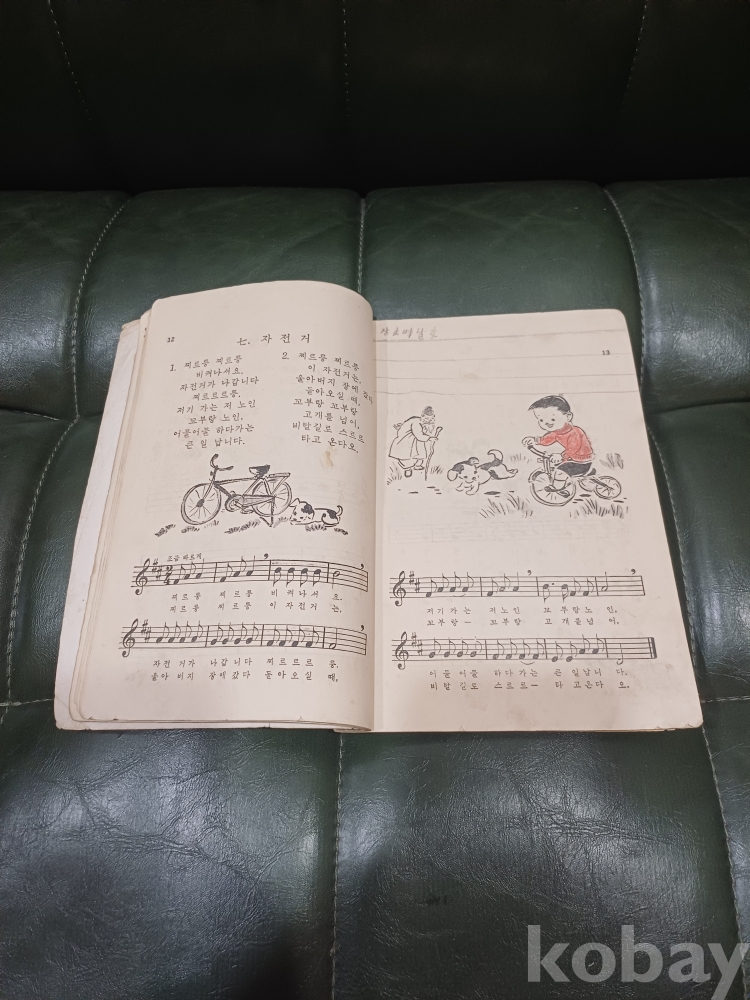 12
七. 자전거
1. 찌르릉 찌르릉
비켜나셔요.
자전거가 나갑니다
찌르르르릉.
저기 가는 저 노인
꼬부랑 노인,
어물어물 하다가는
큰 일 납니다.
2. 찌르릉 찌르릉
이 자전거는,
울아버지 장에 갔다
돌아오실 때,
꼬부랑 꼬부랑
고개를 넘어,
비탈길로 스르르
타고 온다오.
조금 빠르게
찌르릉 찌르릉 비켜나셔요.
찌르릉 찌르릉 이 자전거는,
자전거가 나갑니다 찌르르르릉.
울아버지 장에갔다 돌아오실 때,
13
저기가는 저노인 꼬부랑노인,
꼬부랑— 꼬부랑 고개를넘어,
어물어물 하다가는 큰일납니다.
비탈길로 스르르— 타고온다오.
kobay